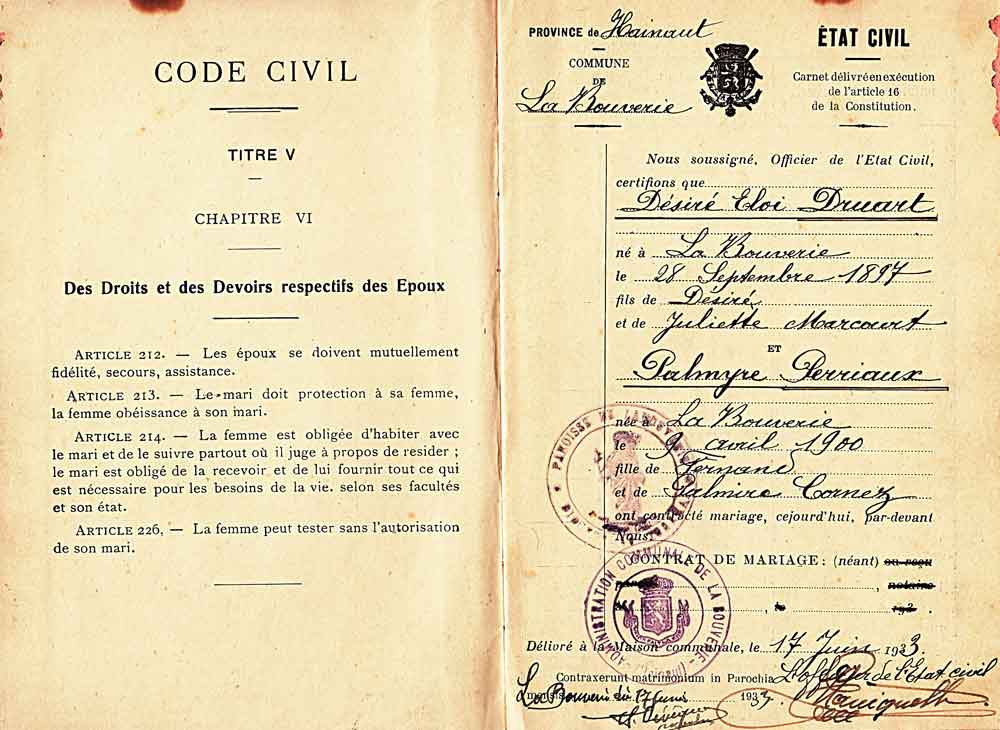 CODE CIVIL
TITRE V
CHAPITRE VI
Des Droits et des Devoirs respectifs des Epoux
ARTICLE 212. — Les époux se doivent mutuellement
fidélité, secours, assistance.
ARTICLE 213. — Le mari doit protection à sa femme,
la femme obéissance à son mari.
ARTICLE 214. — La femme est obligée d'habiter avec
le mari et de le suivre partout où il juge à propos de resider ;
le mari est obligé de la recevoir et de lui fournir tout ce qui
est nécessaire pour les besoins de la vie. selon ses facultés
et son état.
ARTICLE 226, — La femme peut tester sans l'autorisation
de son mari.
PROVINCE de Hainaut
COMMUNE
DE
La Bouverie
ÉTAT CIVIL
Carnet délivré en exécution
de l'article 16
de la Constitution.
Nous soussigné, Officier de l'Etat Civil,
certifions que
Désiré Eloi Druart
né à La Bouverie
le 28 Septembre 1897
fils de Désiré
et de Juliette Marcourt
ET
Palmyre Perriaux
née à La Bouverie
le 9 avril 1900
fille de Fernand
et de Palmire Cornez
ont contracté mariage, cejourd'hui, par-devant
Nous.
CONTRAT DE MARIAGE : (néant) ou reçu
notaire
PAROISSE DE LA BOUVERIE
ADMINISTRATION COMMUNALE DE LA BOUVERIE
Délivré à la Maison communale, le 17 Juin 1933.
Contraxerunt matrimonium in Parochia
L'officier de l'Etat civil
La Bouverie du 17 Juni 1933